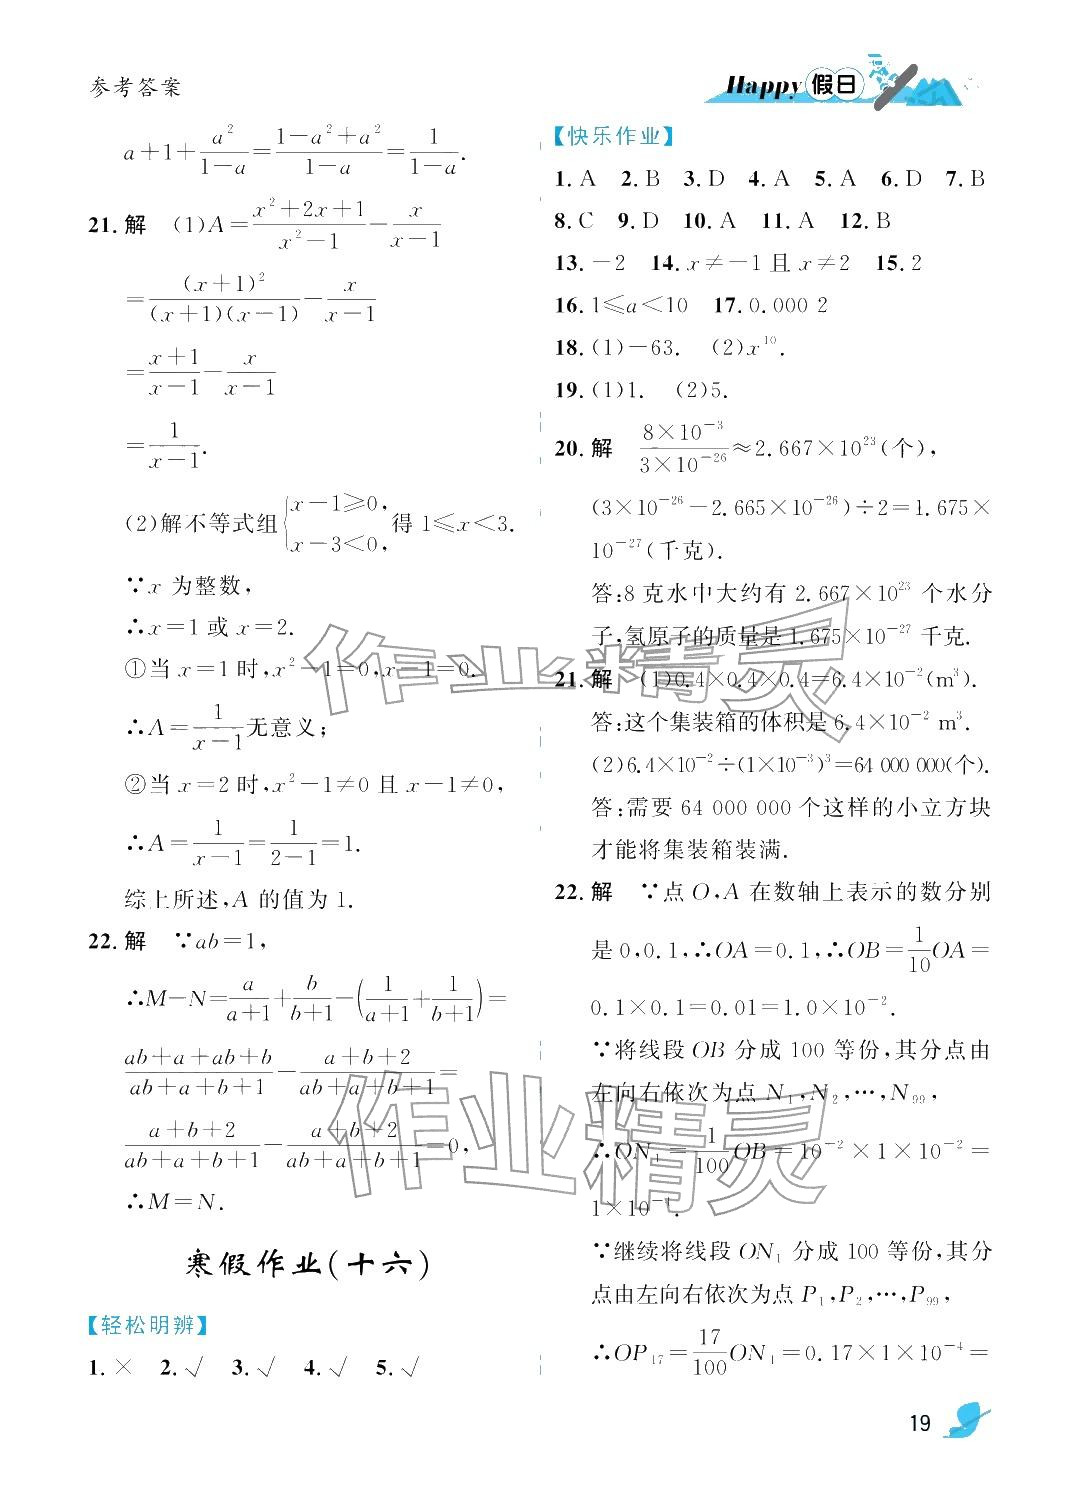 参考答案
Happy 假日
a+1+a²/(1-a)=(1-a²+a²)/(1-a)=1/(1-a).
21.解 (1)A=(x²+2x+1)/(x²-1)-x/(x-1)
=(x+1)²/((x+1)(x-1))-x/(x-1)
=(x+1)/(x-1)-x/(x-1)
=1/(x-1).
(2)解不等式组{x-1≥0, x-3<0, 得 1≤x<3.
∵x 为整数,
∴x=1 或 x=2.
①当 x=1 时,x²-1=0,x-1=0.
∴A=1/(x-1)无意义;
②当 x=2 时,x²-1≠0 且 x-1≠0,
∴A=1/(x-1)=1/(2-1)=1.
综上所述,A 的值为 1.
22.解 ∵ab=1,
∴M-N=a/(a+1)+b/(b+1)-(1/(a+1)+1/(b+1))=
(ab+a+ab+b)/(ab+a+b+1)-(a+b+2)/(ab+a+b+1)=
(a+b+2)/(ab+a+b+1)-(a+b+2)/(ab+a+b+1)=0,
∴M=N.
寒假作业(十六)
【轻松明辨】
1.× 2.√ 3.√ 4.√ 5.√
【快乐作业】
1.A 2.B 3.D 4.A 5.A 6.D 7.B
8.C 9.D 10.A 11.A 12.B
13.-2 14.x≠-1 且 x≠2 15.2
16.1≤a<10 17.0.000 2
18.(1)-63. (2)x¹⁰.
19.(1)1. (2)5.
20.解 (8×10⁻³)/(3×10⁻²⁶)≈2.667×10²³(个),
(3×10⁻²⁶-2.665×10⁻²⁶)÷2=1.675×
10⁻²⁷(千克).
答:8 克水中大约有 2.667×10²³ 个水分
子,氢原子的质量是 1.675×10⁻²⁷ 千克.
21.解 (1)0.4×0.4×0.4=6.4×10⁻²(m³).
答:这个集装箱的体积是 6.4×10⁻² m³.
(2)6.4×10⁻²÷(1×10⁻³)³=64 000 000(个).
答:需要 64 000 000 个这样的小立方块
才能将集装箱装满.
22.解 ∵点 O,A 在数轴上表示的数分别
是 0,0.1,∴OA=0.1,∴OB=1/10 OA=
0.1×0.1=0.01=1.0×10⁻².
∵将线段 OB 分成 100 等份,其分点由
左向右依次为点 N₁,N₂,…,N₉₉,
∴ON₁=1/100 OB=10⁻²×1×10⁻²=
1×10⁻⁴.
∵继续将线段 ON₁ 分成 100 等份,其分
点由左向右依次为点 P₁,P₂,…,P₉₉,
∴OP₁₇=17/100 ON₁=0.17×1×10⁻⁴=
19
作业精灵
作业精灵